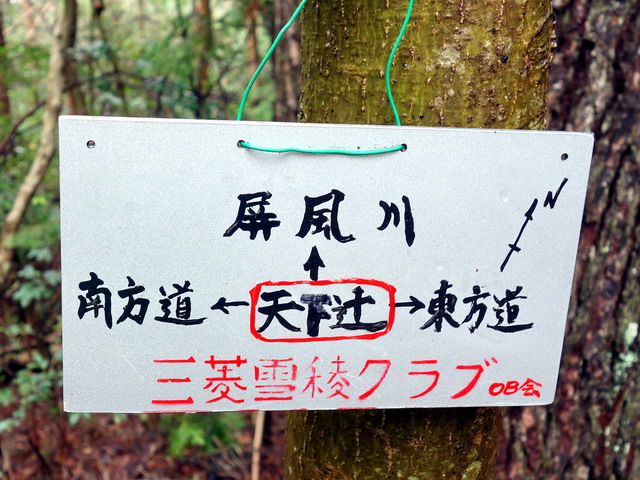 屏風川
N
南方道 ← 天下辻 → 東方道
三菱雪稜クラブ OB会